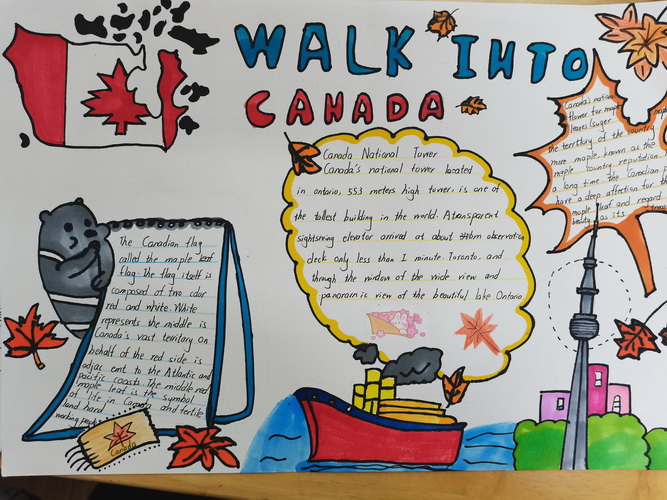 WALK INTO
CANADA
Canada National Turver
Canada's national tower, located
in ontario, 553 meters high turver, is one of
the tallest building in the world. A transparent
sightsreing elevator arrived at about observation
deck only less than 1 minute. Toronto, and
through the window of the wide view and
panoram is view of the beautiful lake Ontario
The Canadian flag
called the maple leaf
flag. The flag itself is
composed of two color
red and white. White
represents the middle is
Canada's vast territory on
behalf of the red side is
adjac ent to the Atlantic and
pacific coasts. The middle red
maple leaf is the symbol
of life in Canada and fertile
land hard
working people
Canada
Canada's nation
flower for maple
leaves (suger
the territory of the country
more maple, known as the
maple country reputation
a long time, the Canadian
have a deep affection for
maple leaf and regard
as its